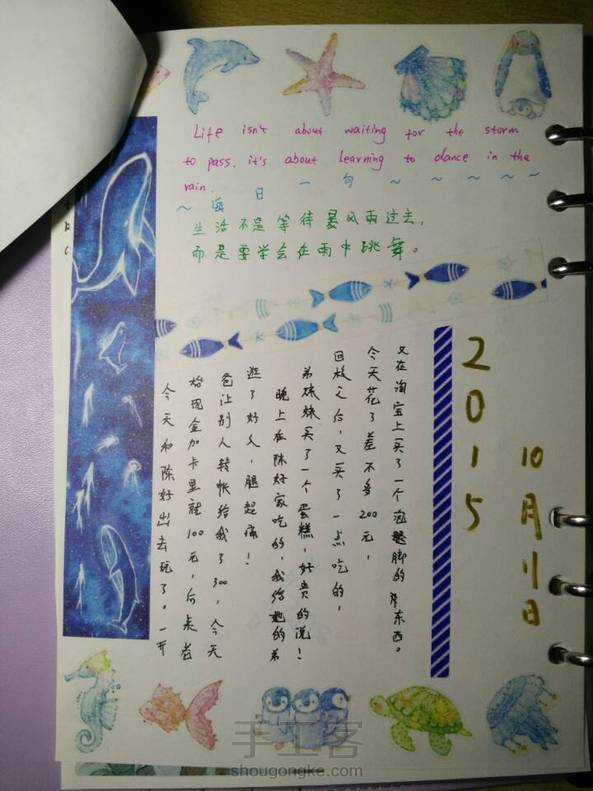 Life isn't about waiting for the storm
to pass. it's about learning to dance in the
rain.
~ 每日一句 ~ ~ ~ ~ ~
生活不是等待暴风雨过去,
而是要学会在雨中跳舞。
2015
10月11日
今天和陈好出去玩了。一开
始现金加卡里就100元,后来老
爸让别人转帐给我了300,今天
逛了好久,腿超痛!
晚上在陈好家吃的,我给她的弟
弟妹妹买了一个蛋糕,好贵的说!
回校之后,又买了一点吃的,
今天花了差不多200元,
又在淘宝上买了一个泡腿脚的东西。
手工客
shougongke.com